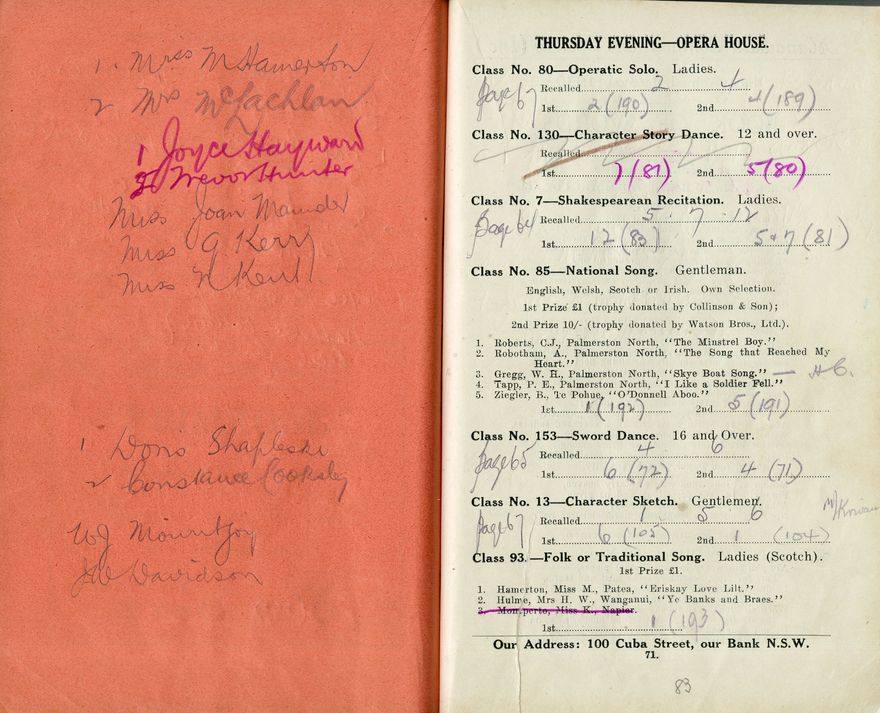 1. Miss M Hamerton
2 Mrs McLachlan
1 Joyce Hayward
2 Trevor Hunter
Miss Joan Maunder
Miss G Kerry
Miss N Kent
1 Doris Shapleski
2 Constance Cooksley
W J Mountjoy
J W Davidson
THURSDAY EVENING—OPERA HOUSE.
Class No. 80—Operatic Solo. Ladies.
page 67
Recalled 2 4
1st 2 (190) 2nd 4 (189)
Class No. 130—Character Story Dance. 12 and over.
Recalled
1st 7 (81) 2nd 5 (80)
Class No. 7—Shakespearean Recitation. Ladies.
page 64
Recalled 5. 7. 12
1st 12 (83) 2nd 5 & 7 (81)
Class No. 85—National Song. Gentleman.
English, Welsh, Scotch or Irish. Own Selection.
1st Prize £1 (trophy donated by Collinson & Son);
2nd Prize 10/- (trophy donated by Watson Bros., Ltd.).
1. Roberts, C.J., Palmerston North, "The Minstrel Boy."
2. Robotham, A., Palmerston North, "The Song that Reached My
Heart."
3. Gregg, W. H., Palmerston North, "Skye Boat Song." — H C.
4. Tapp, P. E., Palmerston North, "I Like a Soldier Fell."
5. Ziegler, B., Te Pohue, "O'Donnell Aboo."
1st 1 (192) 2nd 5 (191)
Class No. 153—Sword Dance. 16 and Over.
page 65
Recalled 4 6
1st 6 (72) 2nd 4 (71)
Class No. 13—Character Sketch. Gentlemen.
page 67
Recalled 1 5 6
1st 6 (105) 2nd 1 (104)
Class 93.—Folk or Traditional Song. Ladies (Scotch).
1st Prize £1.
1. Hamerton, Miss M., Patea, "Eriskay Love Lilt."
2. Hulme, Mrs H. W., Wanganui, "Ye Banks and Braes."
3. Momperto, Miss K., Napier.
1st 1 (193)
Our Address: 100 Cuba Street, our Bank N.S.W.
71.
83